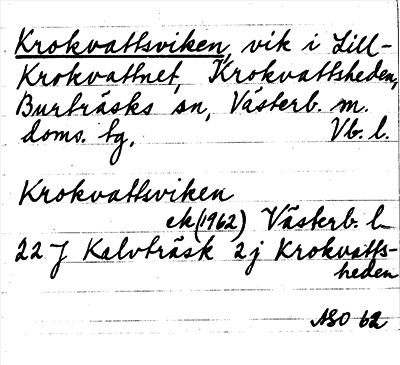 Krokvattsviken, vik i Lill-
Krokvattnet, Krokvattsheden,
Burträsks sn, Västerb. m.
doms. tg, Vb. l.
Krokvattsviken
ek (1962) Västerb. l
22 J Kalvträsk 2 j Krokvatts-
heden
ASO 62